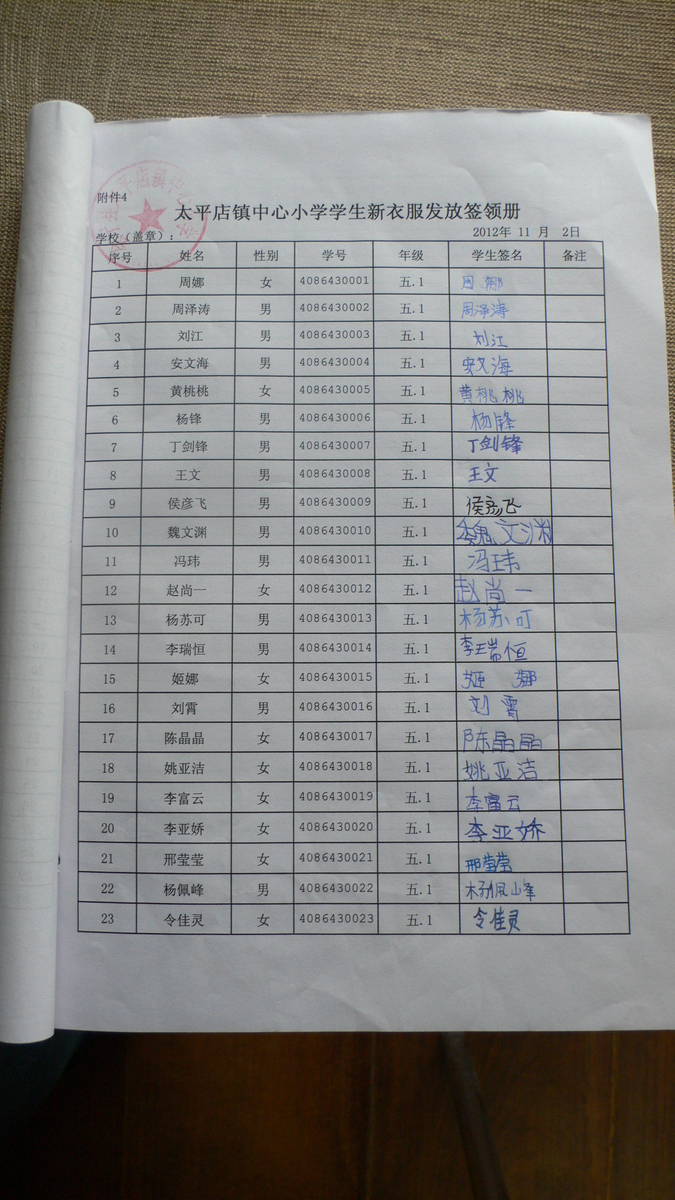 附件4
太平店镇中心小学学生新衣服发放签领册
学校(盖章): 2012年 11 月 2日
序号 姓名 性别 学号 年级 学生签名 备注
1 周娜 女 4086430001 五.1 周娜
2 周泽涛 男 4086430002 五.1 周泽涛
3 刘江 男 4086430003 五.1 刘江
4 安文海 男 4086430004 五.1 安文海
5 黄桃桃 女 4086430005 五.1 黄桃桃
6 杨锋 男 4086430006 五.1 杨锋
7 丁剑锋 男 4086430007 五.1 丁剑锋
8 王文 男 4086430008 五.1 王文
9 侯彦飞 男 4086430009 五.1 侯彦飞
10 魏文渊 男 4086430010 五.1 魏文渊
11 冯玮 男 4086430011 五.1 冯玮
12 赵尚一 女 4086430012 五.1 赵尚一
13 杨苏可 男 4086430013 五.1 杨苏可
14 李瑞恒 男 4086430014 五.1 李瑞恒
15 姬娜 女 4086430015 五.1 姬娜
16 刘霄 男 4086430016 五.1 刘霄
17 陈晶晶 女 4086430017 五.1 陈晶晶
18 姚亚洁 女 4086430018 五.1 姚亚洁
19 李富云 女 4086430019 五.1 李富云
20 李亚娇 女 4086430020 五.1 李亚娇
21 邢莹莹 女 4086430021 五.1 邢莹莹
22 杨佩峰 男 4086430022 五.1 杨佩峰
23 令佳灵 女 4086430023 五.1 令佳灵